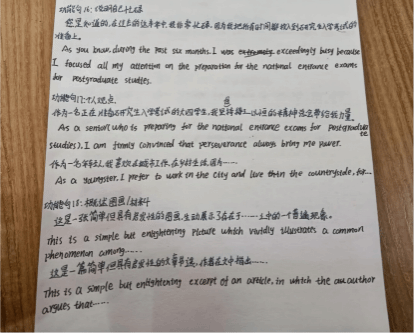 功能句16: 说明自己忙碌
您是知道的, 在过去的近半年中, 我非常忙碌, 因为我把所有时间都投入到研究生入学考试的
准备上。
As you know, during the past six months, I was exceedingly busy because
I focused all my attention on the preparation for the national entrance exams
for postgraduate studies.
功能句17: 个人观点
作为一名正在准备研究生入学考试的大四学生, 我坚持的精神总会带给我力量。
As a senior(who is preparing for the national entrance exams for Postgraduate
studies), I am firmly convinced that perseverance always bring me power.
作为一名年轻人, 我喜欢在城市工作, 在乡村生活, 因为……
As a youngster, I prefer to work in the city and live in the countryside, for...
功能句18: 概述图画/材料
这是一张简单但具有启发性的图画, 生动展示了存在于……中的一个普遍现象。
This is a simple but enlightening picture which vividly illustrates a common
phenomenon among......
这是一篇简单但具有启发性的文章节选, 作者在文中指出……
This is a simple but enlightening excerpt of an article, in which the author
argues that......